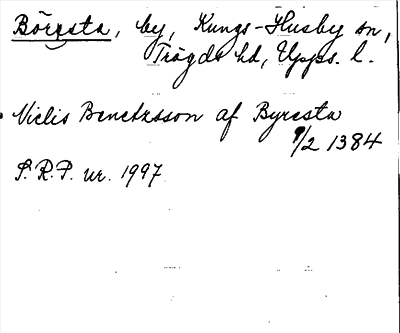 Böresta, by, Kungs-Husby sn,
Trögds hd, Upps. l.
Niclis Benedictsson af Byresta
9/2 1384
S.R.P. nr. 1997